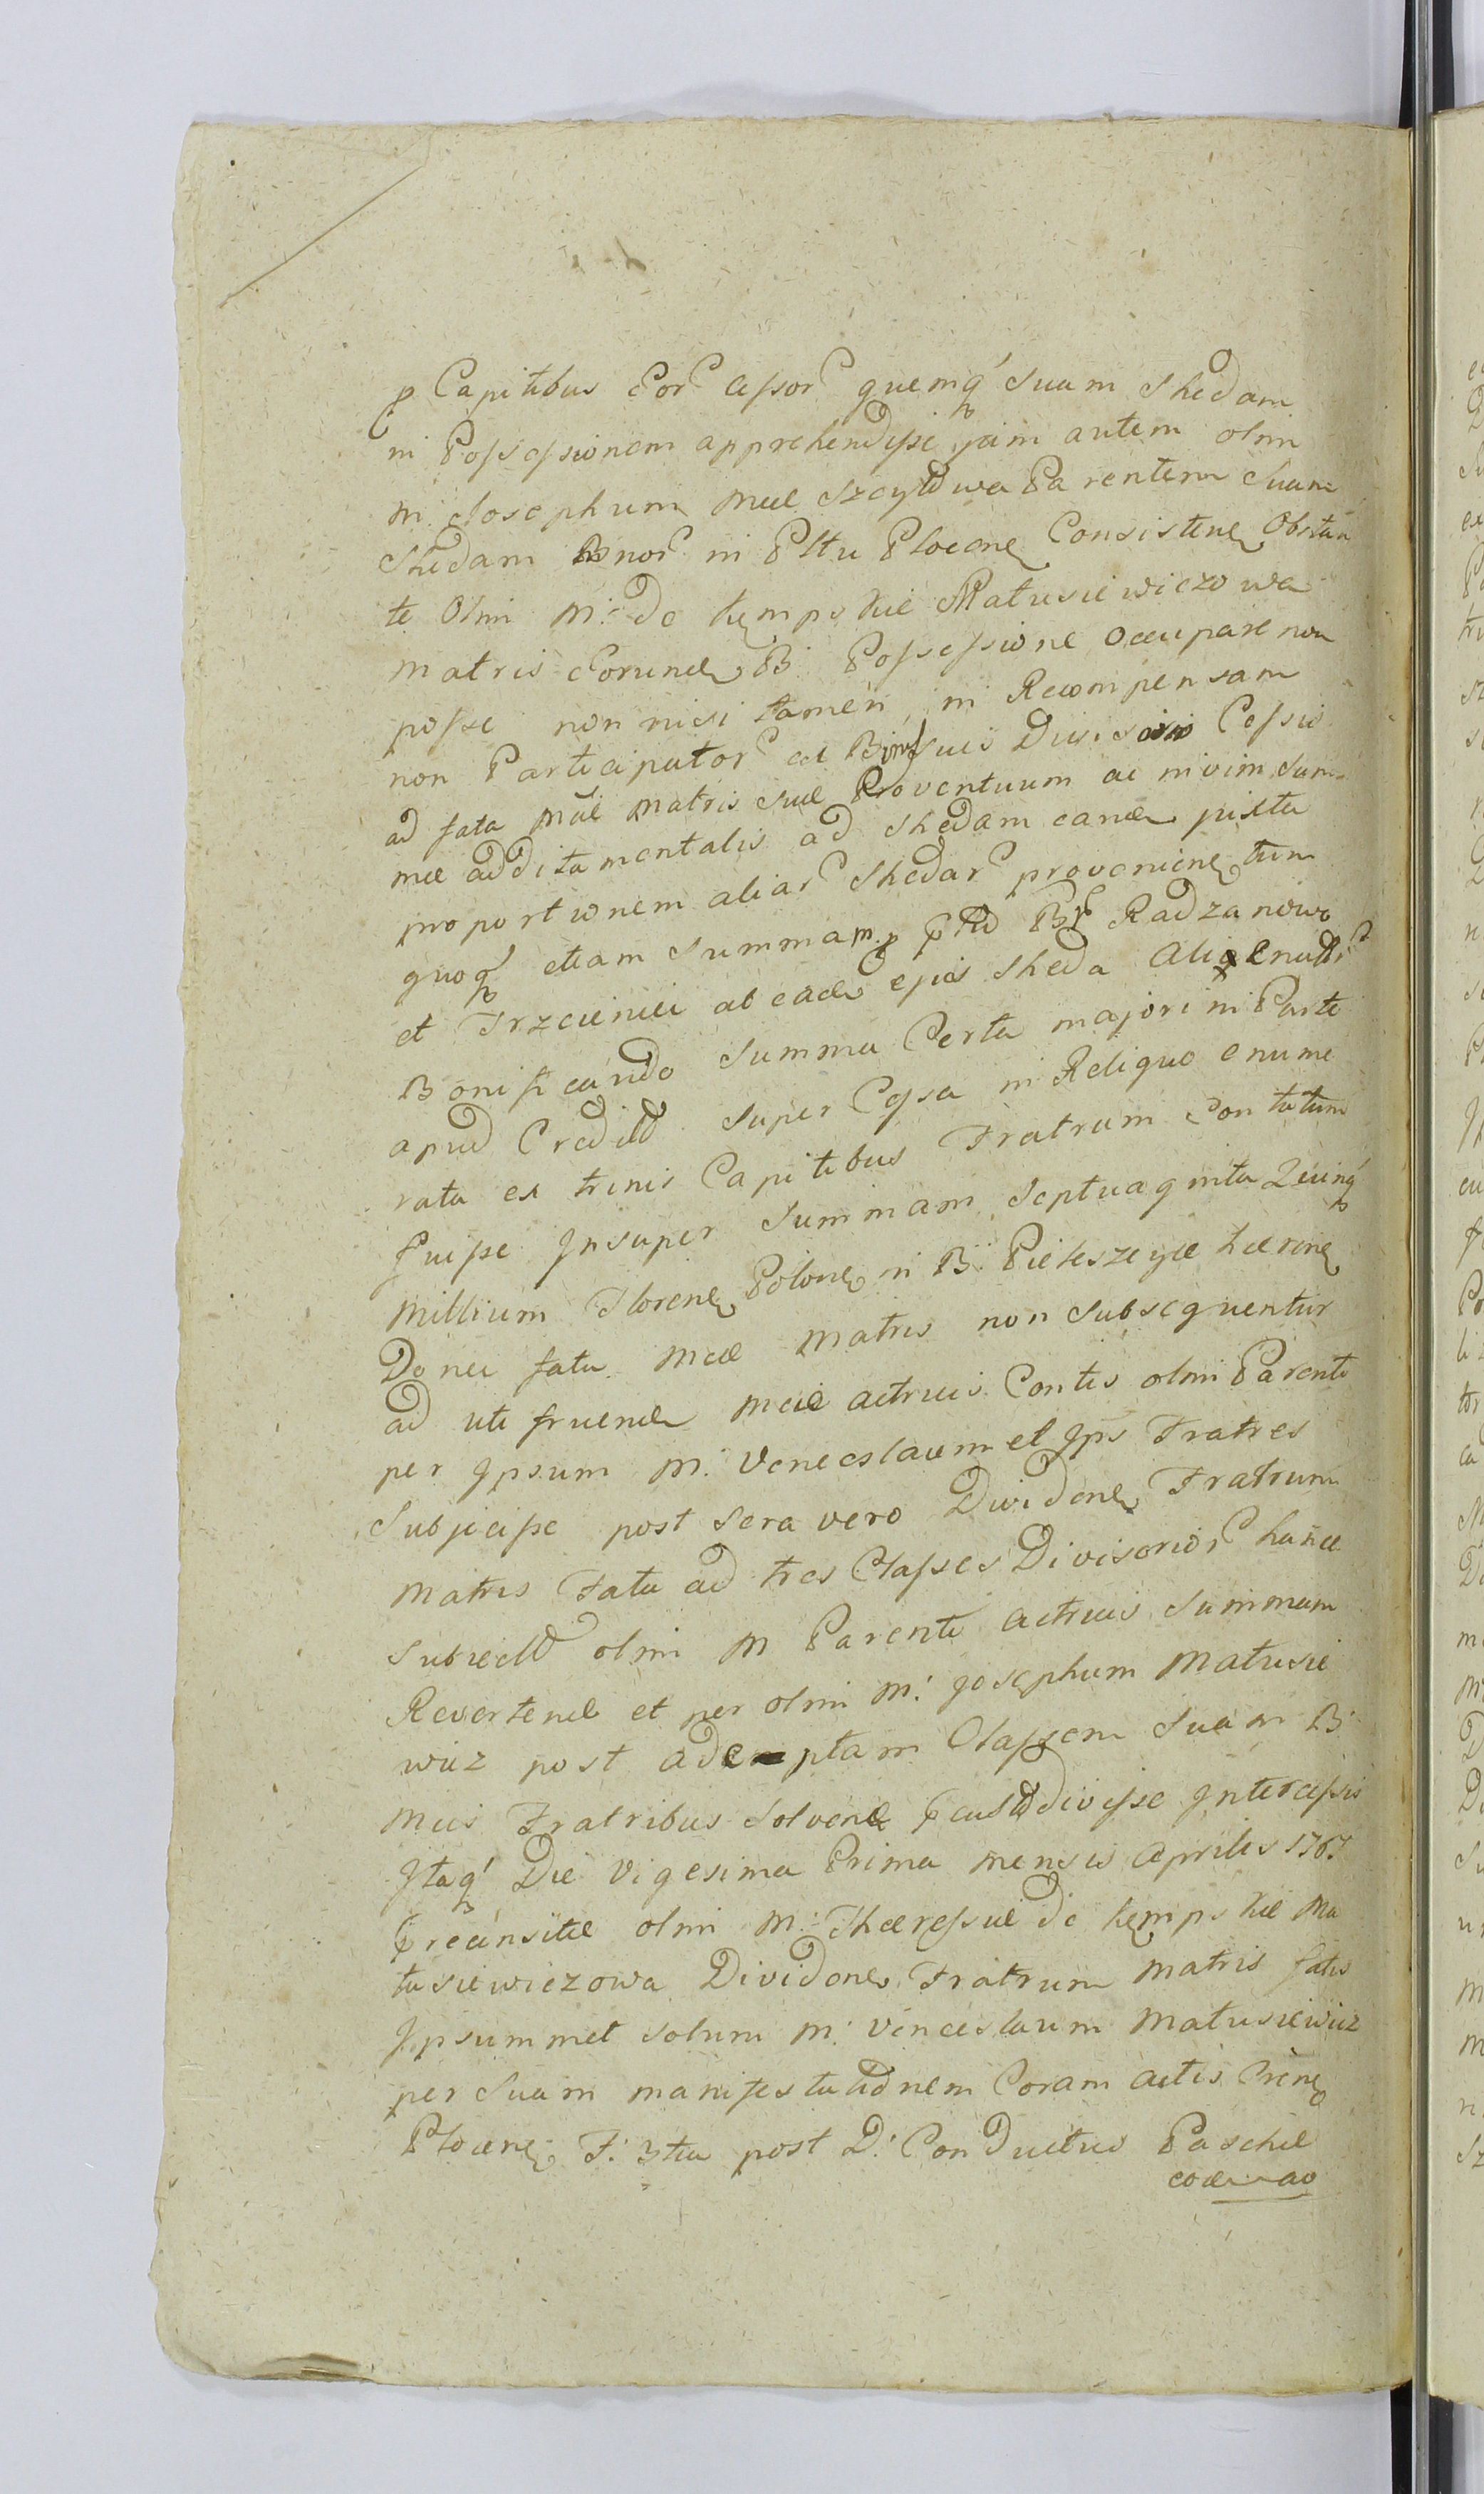 p Capitibus Eor Assor quemq suam Shedam
in Possessionem apprehendisse jam autem olim
M. Josephum Mae Szczytowa Parentem Suam
Shedam Bnor in Pltu Plocen Consisten Obstan
te Olim M: de Kempskie Matusiewiczowa
Matris Eorund B. Possessione occupare non
posse non nisi tamen in Recompensam
non Participator ad Bina suis Divisoris Cessio
ad fata Mae Matris Suae Proventuum ac in vim Sum
mae additamentalis ad Shedam eand juxta
proportionem aliar Shedar provenien tum
quoq etiam Summam p Ptd Br Radzanowo
et Trzcienici ab ead ejus Sheda
Bonificando Summa Certa majori in Parte
apud Credit Super Cessa in Reliquo enume
rata ex trinis Capitibus Fratrum Contutum
fuisse Insuper Summam Septuaginta Quinq
Millium Floren Polon in B. haeren
Donec fata Mae Matris non Subsequentur
ad uti fruend Meae actricis Contis olim Parenti
per Ipsum M. Venceslaum et Ips Fratres
Subjecisse post Sera vero Dividen Fratrum
Matris Fata ad tres Classes Divisorior hance
Subiectt olim M Parenti actricis Summam
Revertend et per olim M. Josephum Matusie
wicz post ademptam Classem Suam B
Meis Fratribus Solvend Intercessis
Itaq Die Vigesima Prima mensis Aprilis 1767
Precensitae olim M. Thaeressiae de Kempskie Ma
tusiewiczowa Dividen Fratrum Matris fatis
Ipsummet Solum M. Venceslaum Matusiewicz
per Suam manifestationem Coram actis Tren
Plocen F. 3tia post D. Conductus Paschae